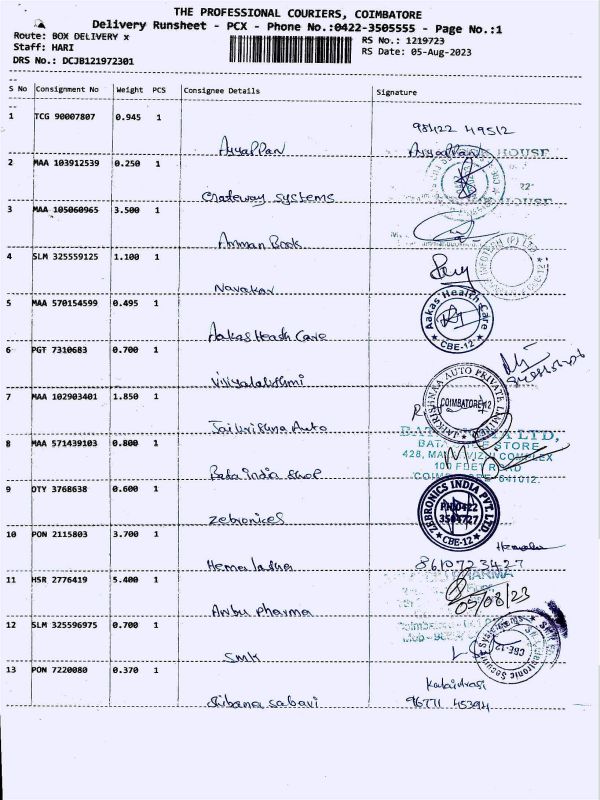 THE PROFESSIONAL COURIERS, COIMBATORE
Delivery Runsheet - PCX - Phone No.:0422-3505555 - Page No.:1
Route: BOX DELIVERY x
RS No.: 1219723
Staff: HARI
RS Date: 05-Aug-2023
DRS No.: DCJB121972301
S No Consignment No Weight PCS Consignee Details Signature
1 TCG 90007807 0.945 1
98422 49512
Ayyappan Ayyappan
2 MAA 103912539 0.250 1
Grateway Systems
3 MAA 105060965 3.500 1
Amman Book
4 SLM 325559125 1.100 1
Navakar
5 MAA 570154599 0.495 1
Aakas Health Care
CBE-12
Aakas Heath Care
6 PGT 7310683 0.700 1
Vijiyalakshmi
7 MAA 102903401 1.850 1
JAIKRISHNAA AUTO PRIVATE LIMITED
COIMBATORE-12
Jaikrishna Auto
8 MAA 571439103 0.800 1
STORE
428, COMPLEX
100 FEET ROAD
641012.
Bata india shop
9 OTY 3768638 0.600 1
ZEBRONICS INDIA PVT. LTD.
PH:0422
3504727
CBE-12
Zebronices
10 PON 2115803 3.700 1
Hemalatha 8610723427
11 HSR 2776419 5.400 1
PHARMA
05/08/23
Anbu Pharma
12 SLM 325596975 0.700 1
CBE-12
SMK
13 PON 7220080 0.370 1
Shibana sabavi 96771 45394